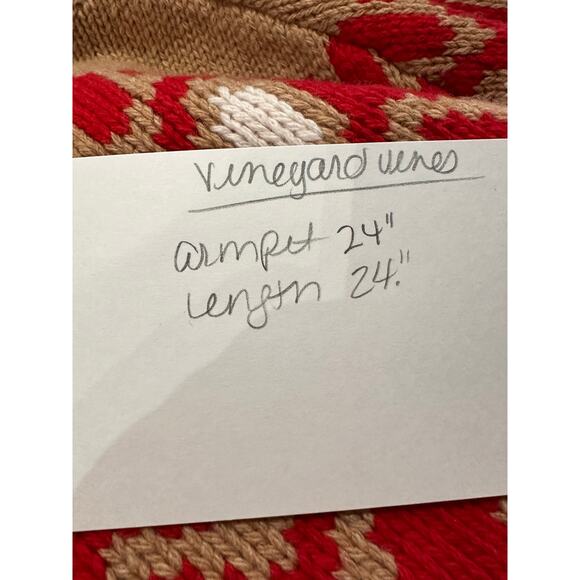 vineyard vines
armpit 24"
length 24."